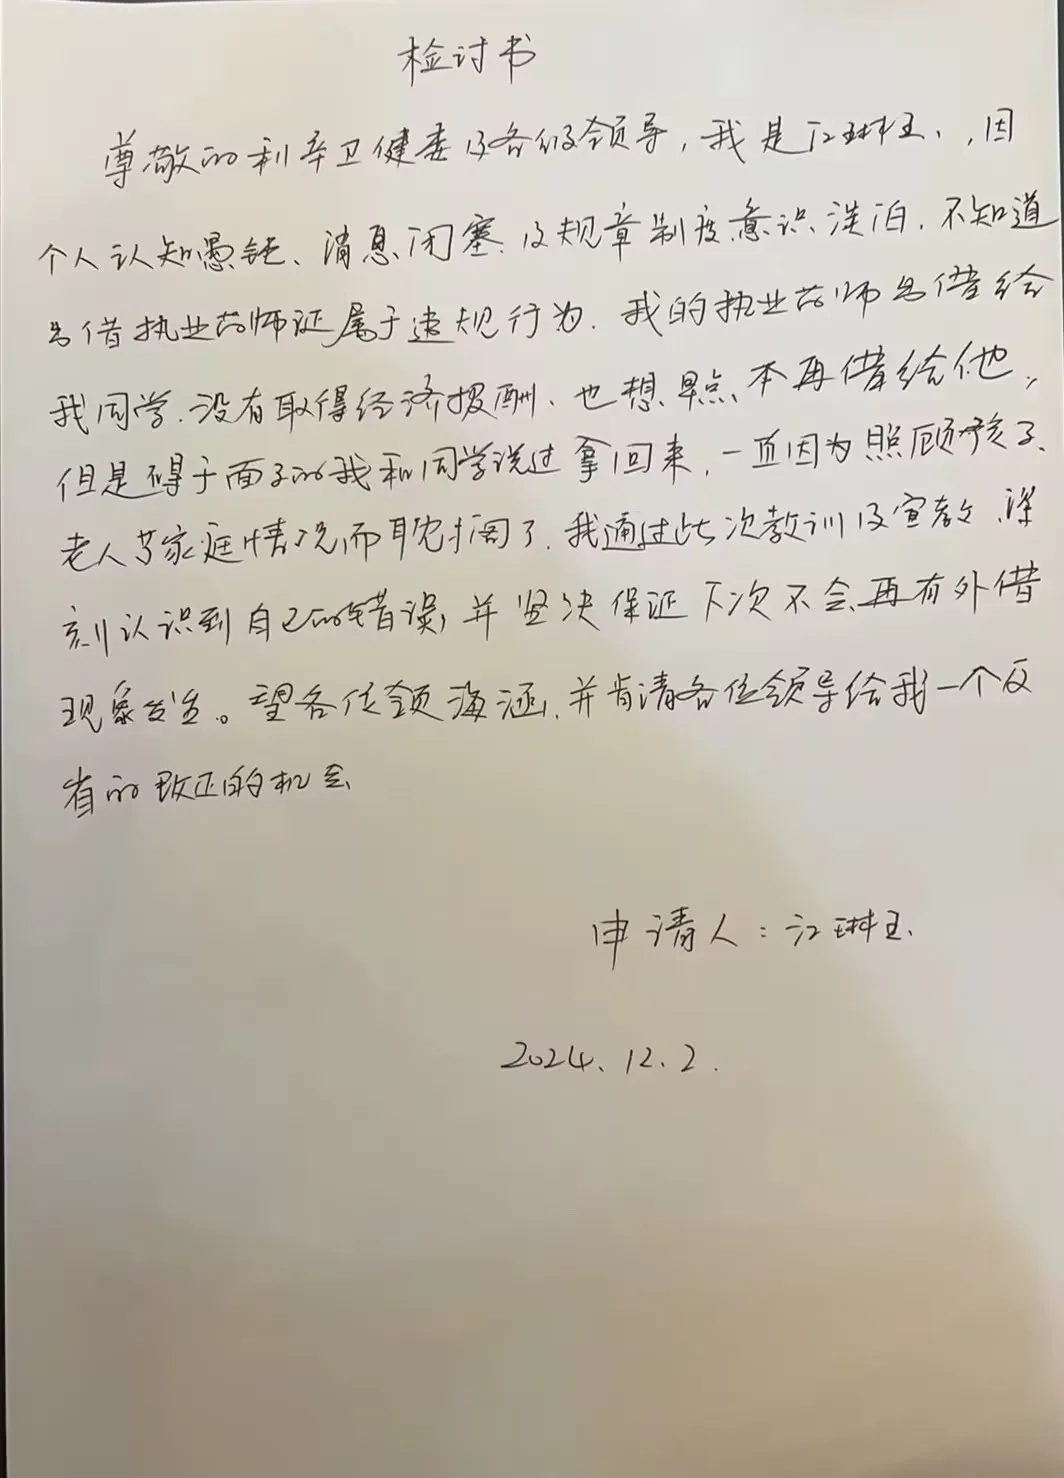 检讨书
尊敬的利辛卫健委及各级领导，我是江琳玉、，因
个人认知愚钝、消息闭塞、及规章制度意识淡泊．不知道
出借执业药师证属于违规行为．我的执业药师出借给
我同学．没有取得经济报酬、也想早点、本再借给他，
但是碍于面子的我和同学说过拿回来，一直因为照顾孩子、
老人等家庭情况而耽搁了．我通过此次教训及宣教，深
刻认识到自己的错误，并坚决保证下次不会再有外借
现象发生。望各位领海涵，并肯请各位领导给我一个反
省的改正的机会
申请人：江琳玉、
2024、12、2．